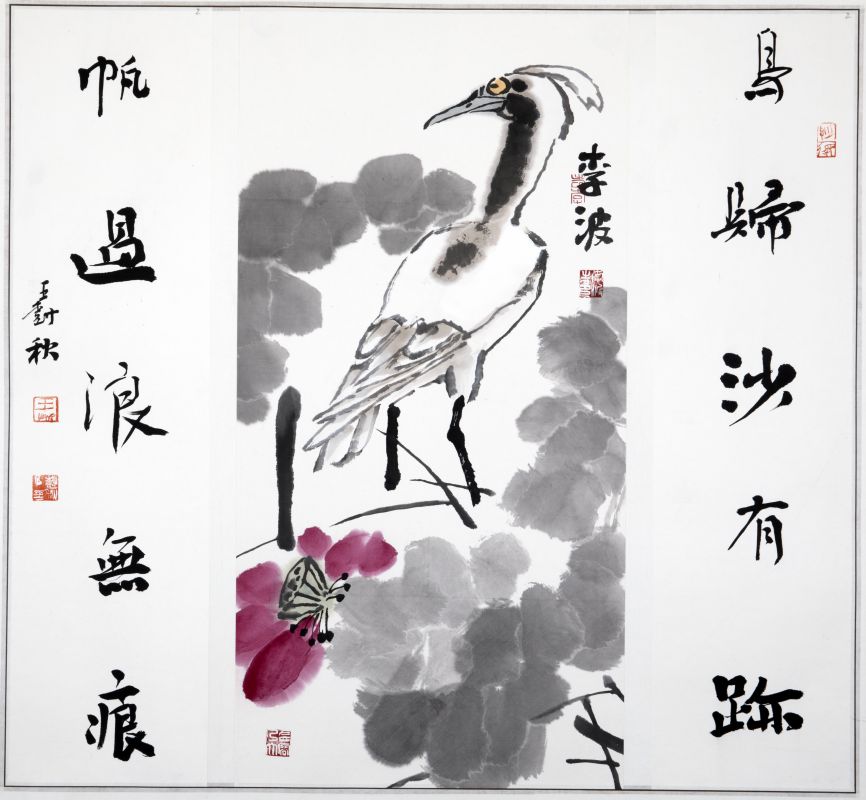 鳥歸沙有跡
李波
帆過浪無痕
王樹秋